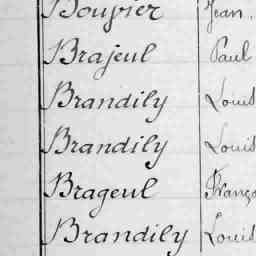 Bouvier Jean.
Brajeul Paul
Brandily Louis
Brandily Louis
Brageul
Brandily Louis